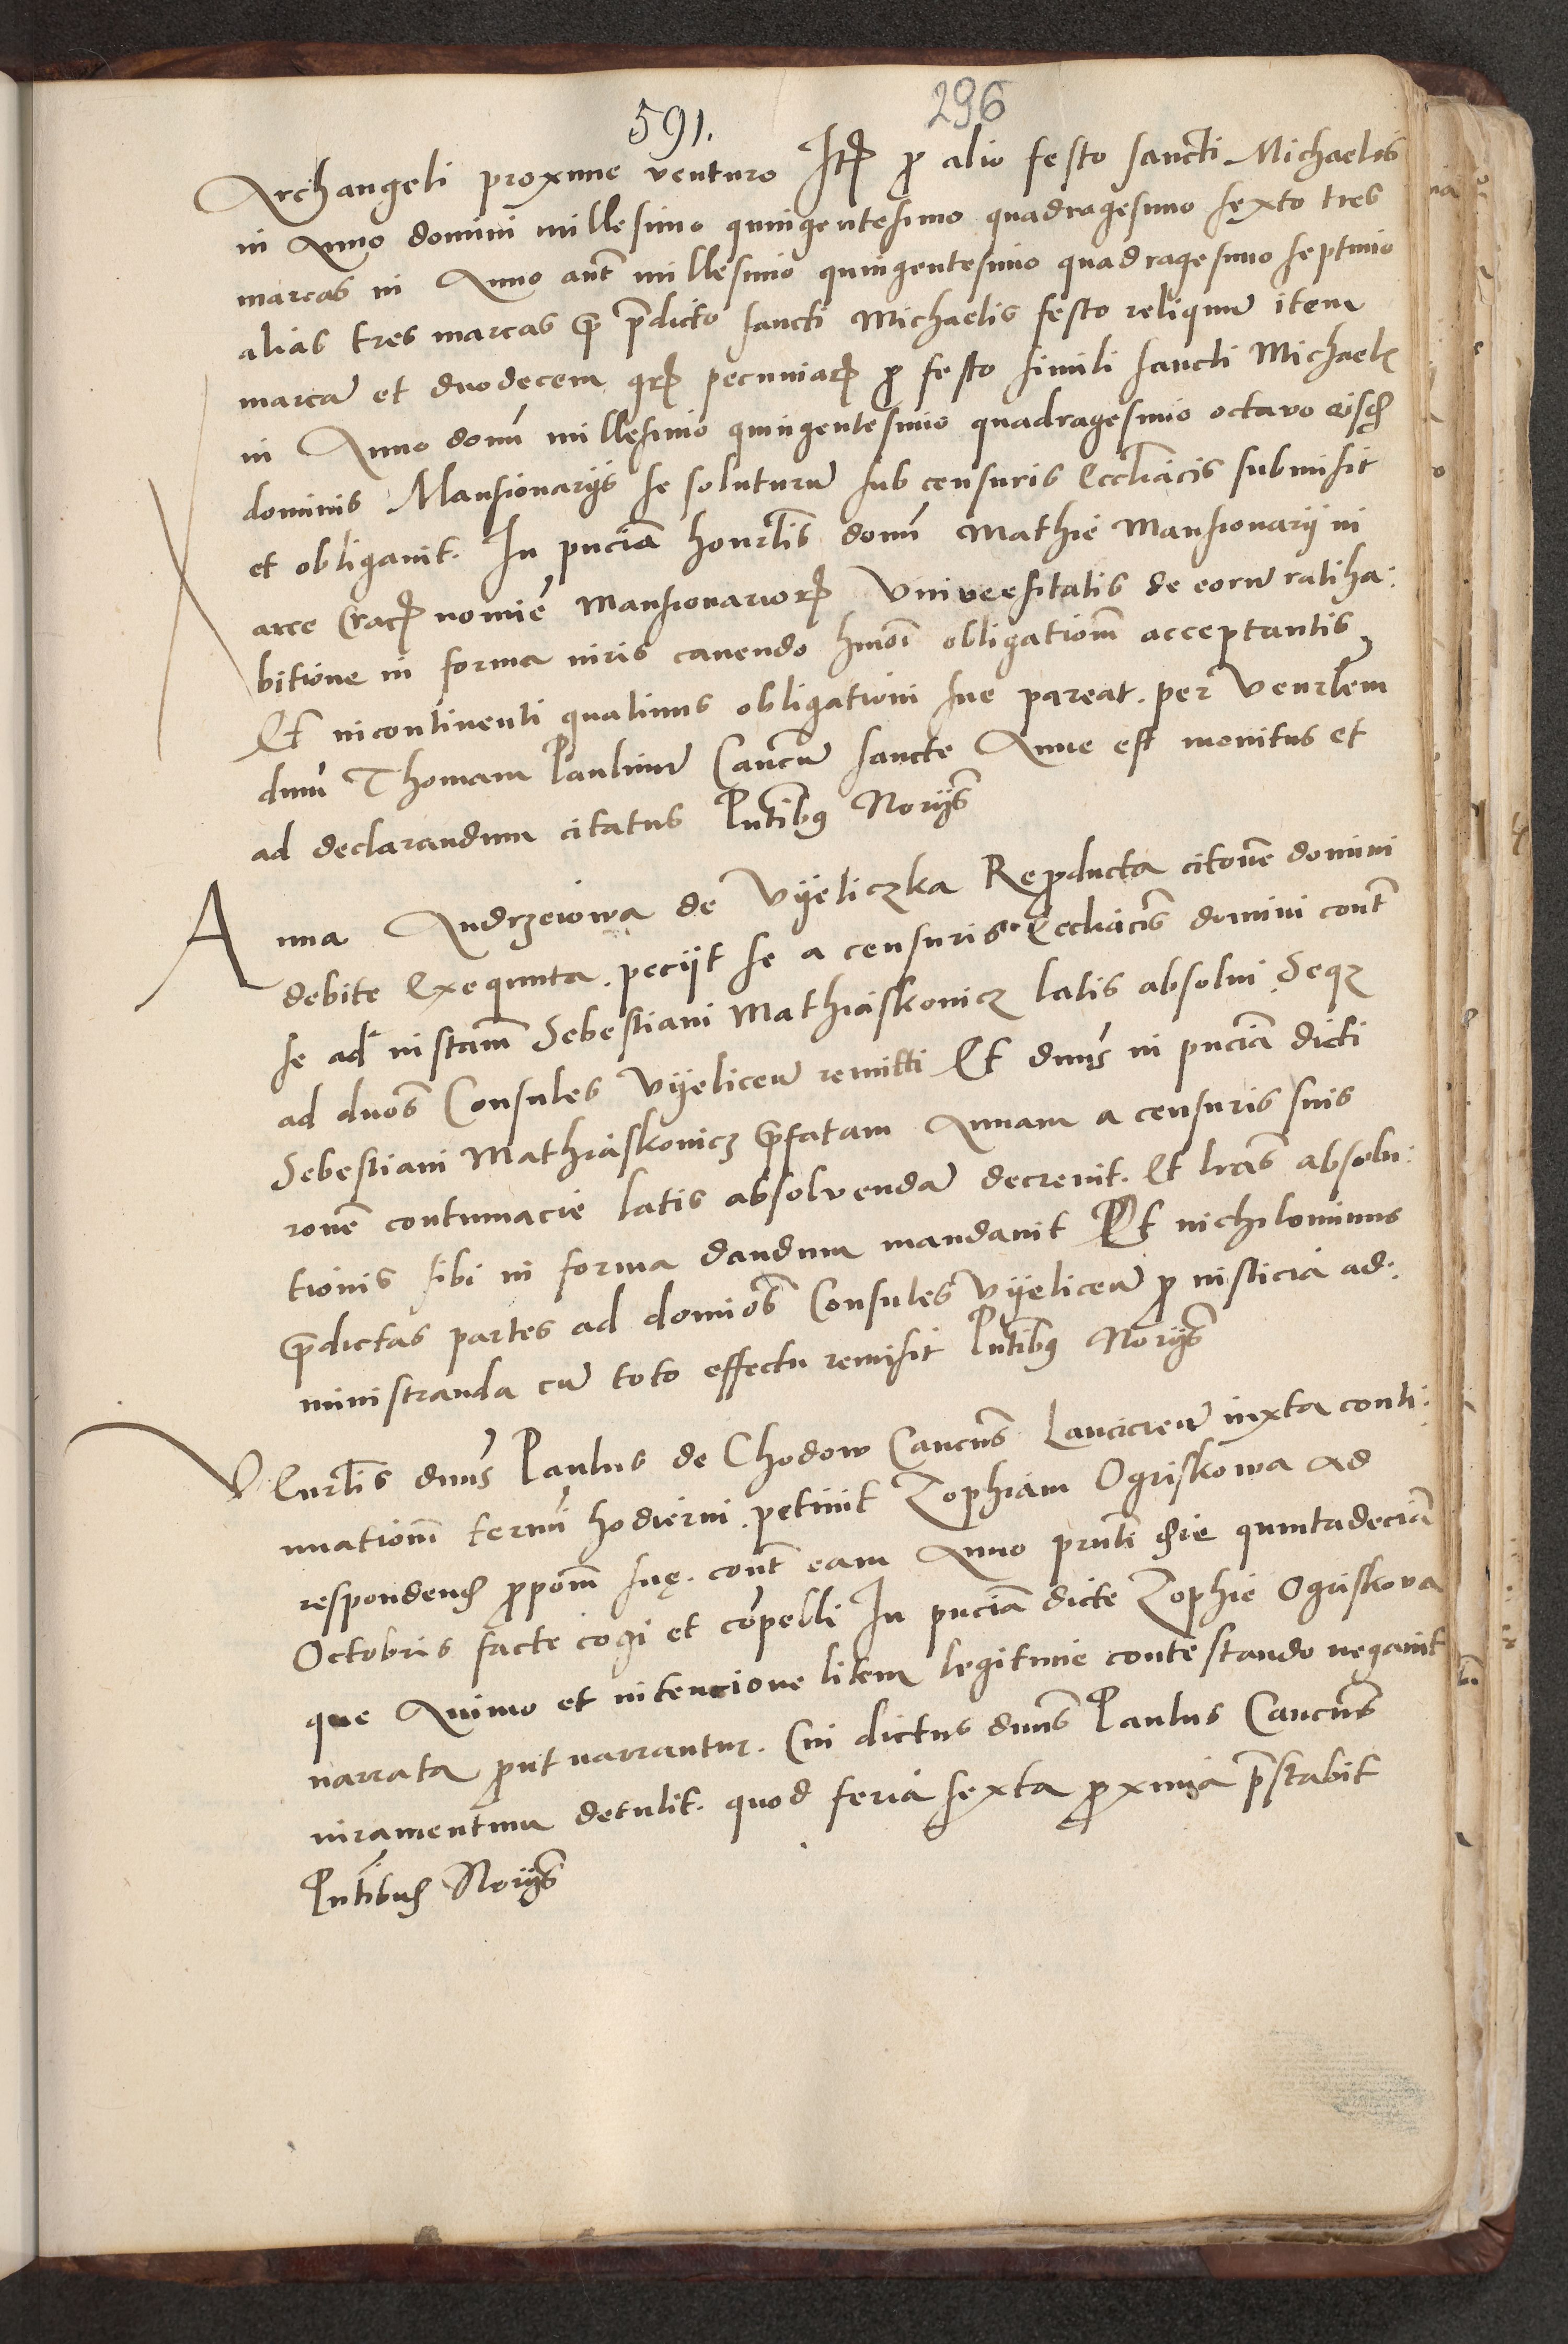 591.
296
Archangeli proxime venturo Itē ꝑ alio festo sancti Michaelis
in Anno domini millesimo quingentesimo quadragesimo sexto tres
marcas in Anno aūt millesimo quingentesimo quadragesimo septimo
alias tres marcas ꝓ p̄dicto sancti Michaelis festo reliquā item
marcā et duodecem gr̄ pecuniar̄ ꝓ festo simili sancti Michael̄
in Anno domī millesimo quingentesimo quadragesimo octavo eisd̄
dominis Mansionarijs se soluturū sub censuris Eccl̄iacis submisit
et obligavit. In pn̄ciā honr̄lis domī Mathie Mansionarij in
arce Crac̄ nomīe Mansionarior̄ Universitatis de eorū ratiha:
bitione in forma iuris cavendo hmōi obligationē acceptantis
Et incontinenti quatinus obligationi sue pareat. per Venr̄lem
dnm̄ Thomam Paulinū Canc̄um sancte Anne est monitus et
ad declarandum citatus Pn̄tibꝰ Norijs̄
Anna Andrzeiowa de Vyeliczka Reproducta citōne domini
debite Exequuta. pecijt se a censuris Eccl̄iacis domini cont̄
se ad instam̄ Sebestiani Mathiaskovicz latis absolvi. Seqꝫ
ad dnos̄ Consules Vyelicen̄ remitti Et dnūs in pn̄ciā dicti
Sebestiani Mathiaskovicz p̄fatam Annam a censuris suis
ronē contumacie latis absolvendā decrevit. Et lr̄as absolu:
tionis sibi in forma dandum mandavit Et nichilominus
p̄dictas partes ad domīos Consules Vyelicen̄ ꝓ iusticia ad:
ministranda cū toto effectu remisit Pn̄tibꝰ Norijs̄
Venr̄lis dnūs Paulus de Chodow Canc̄us Lancicien̄ iuxta conti:
nuationē termī hodierni. petivit Zophiam Ogriskowa ad
respondend̄ ꝓpoīni suę. cont̄ eam Anno pn̄ti die quintadecīa
Octobris facte cogi et cōpelli In pn̄ciā dicte Zophie Ogriskova
que Animo et intencione litem legitime contestando negavit
narrata ꝓut narrantur. Cui dictus dnūs Paulus Canc̄us
iuramentum detulit. quod feria sexta ꝓxima p̄stabit
Pn̄tibus Norijs̄